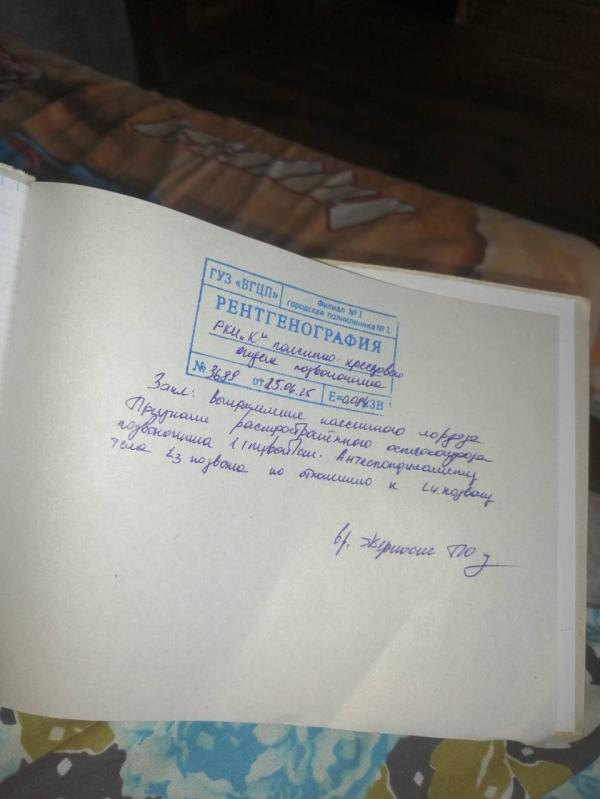 ГУЗ «ВГЦП»
Филиал № 1
городская поликлиника № 1
РЕНТГЕНОГРАФИЯ
пояснично-крестцового
отдела позвоночника
№ 3699 от 25.06.25 Е= мЗВ
Закл: Выпрямление поясничного лордоза
Признаки распространенного остеохондроза
позвоночника Антеспондилолистез
тела L3 позвонка по отношению к L4 позвонку.
вр.